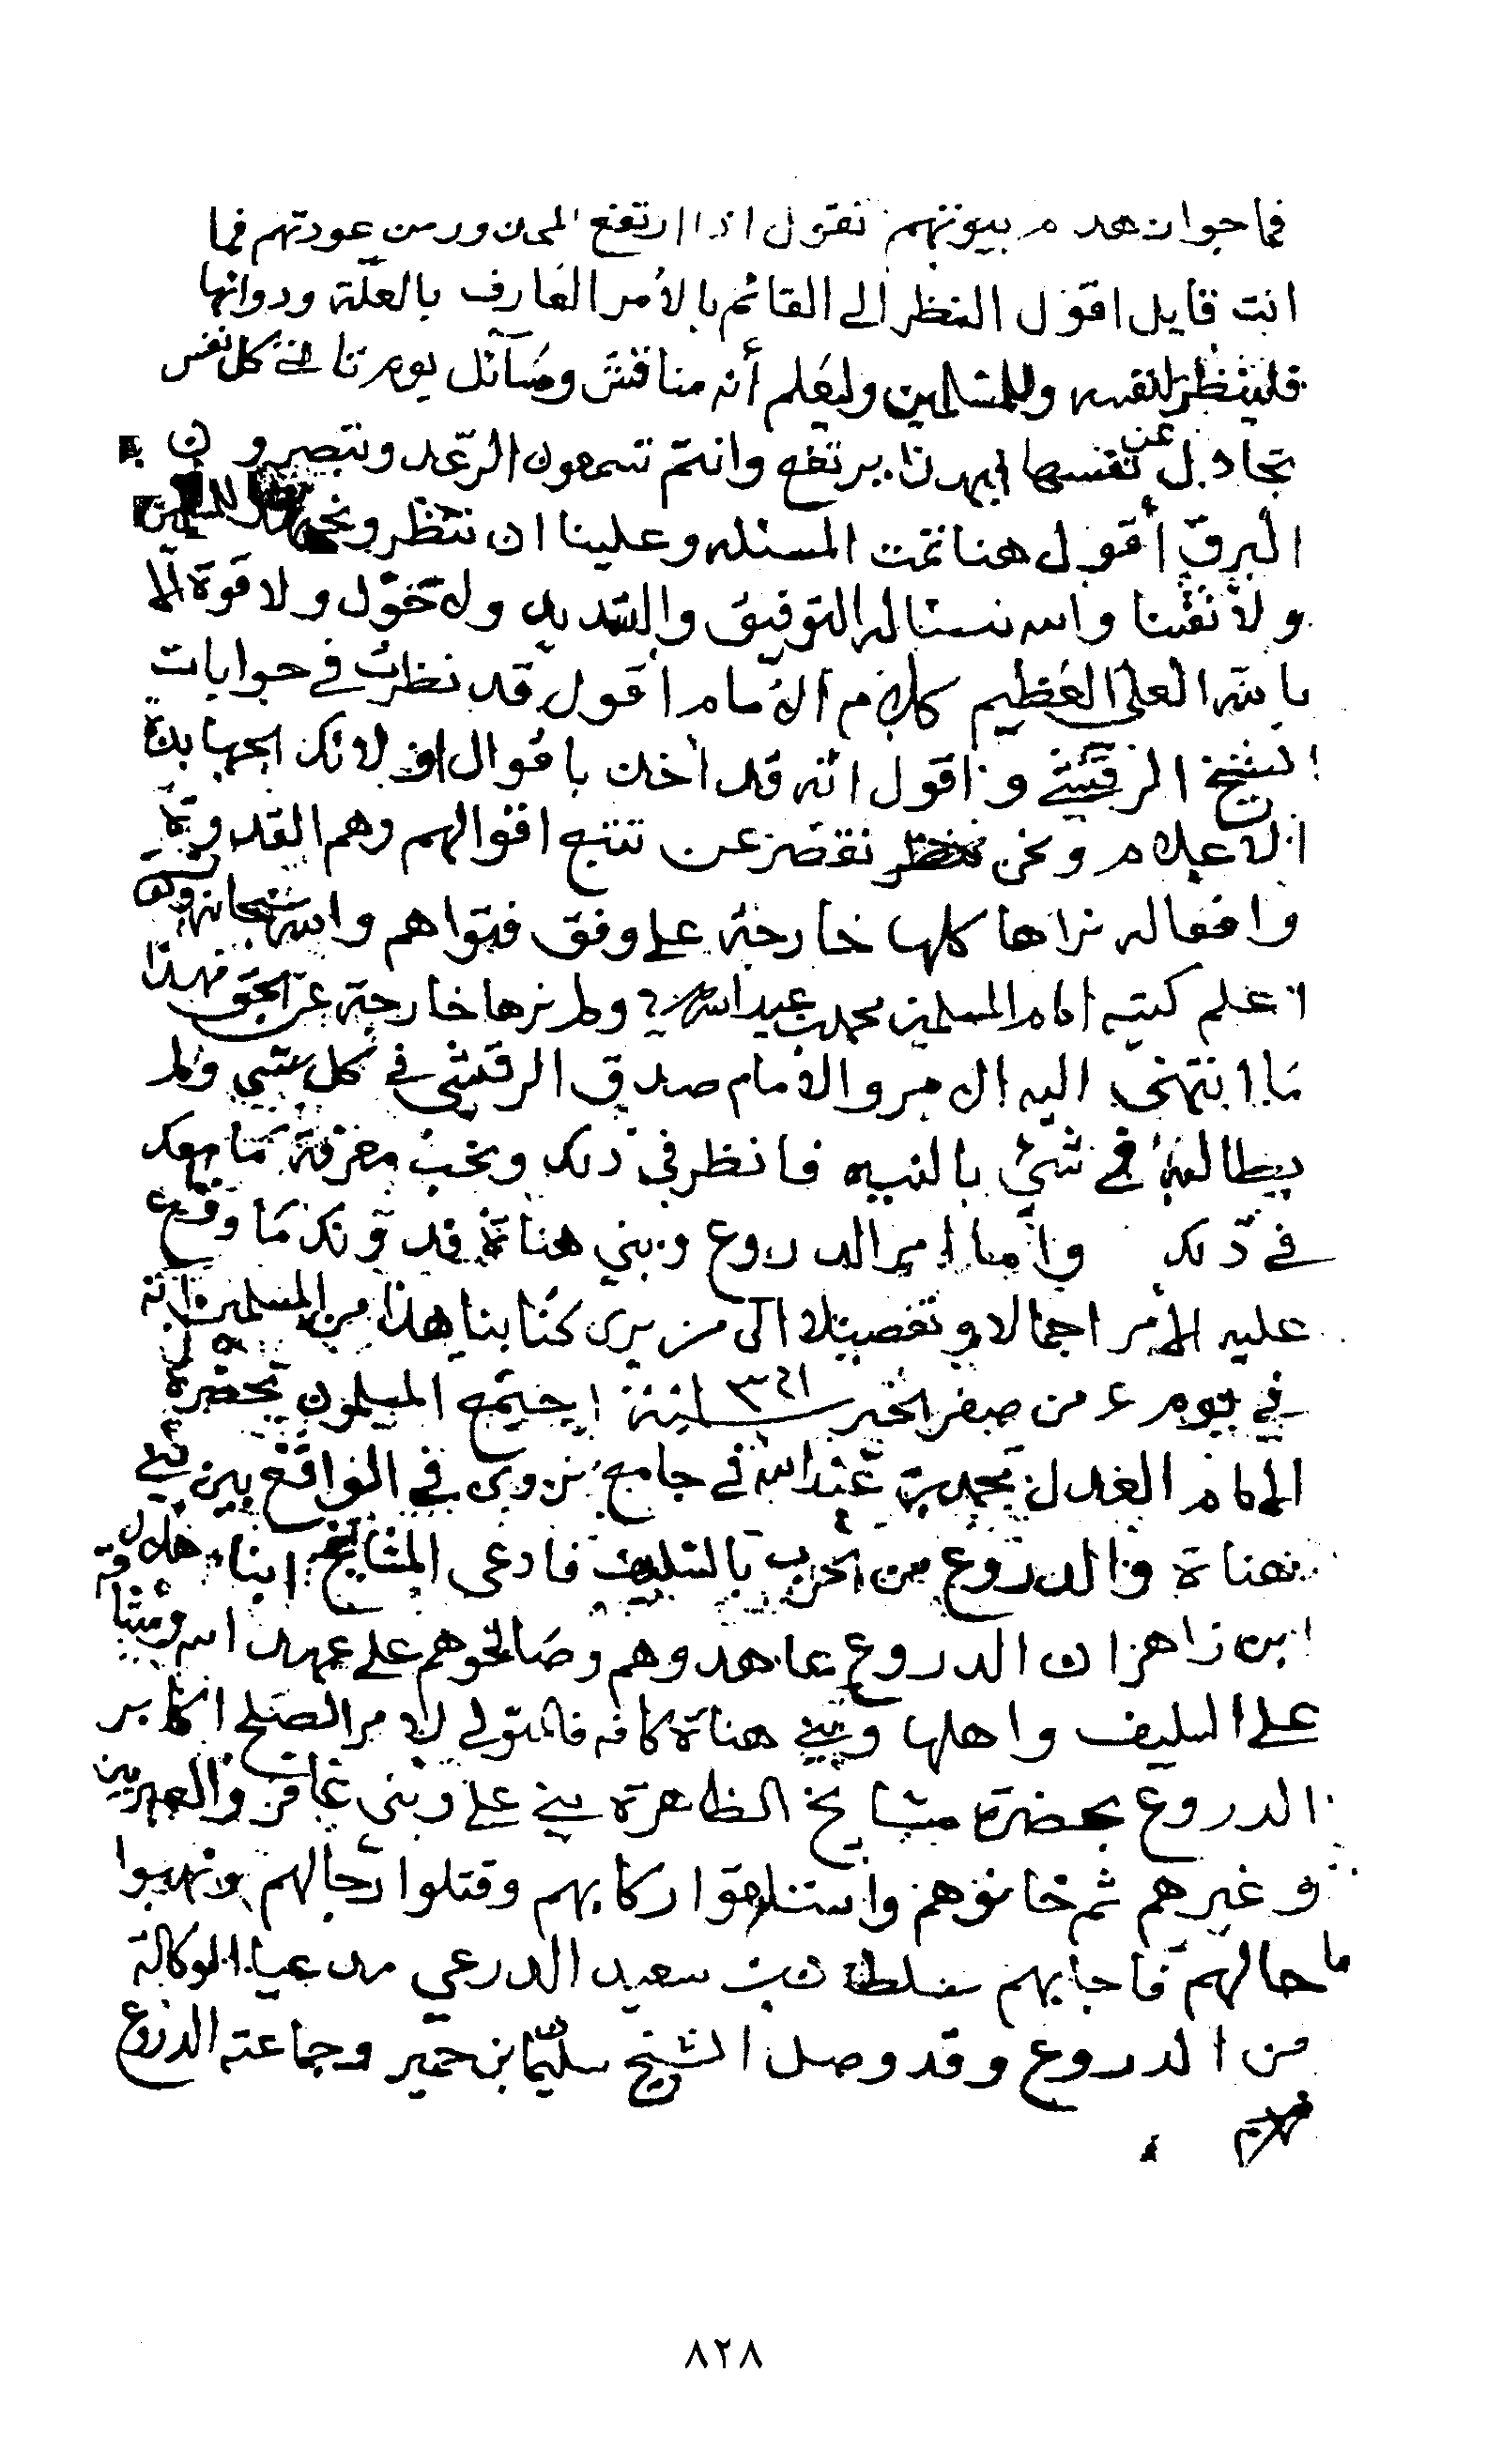 فما جواز هدم بيوتهم نقول اذا ارتفع المحن ورمن عودتهم فما
انت قايل اقول النظر الى القائم بالأمر العارف بالعلّة ودوائها
فلينظر لنفسه وللمسلمين وليعلم أنه مناقش ومسآئل يوم تاتي كل نفس
تجادل عن نفسها ايهدن يرتفع وانتم تسمعون الرّعد وتبصرون
البرق أقول هنا تمت المسئله وعلينا ان ننظر للمسلمين
ولأنفسنا والله نسئاله التوفيق والتسديد ولا حول ولا قوة الا
بالله العلي العظيم كلام الامام اقول قد نظرت في جوابات
الشيخ الرقيشي واقول انه قد اخذ باقوال اولائك الجهابذة
الاعلام ونحن نقصر عن تتبع اقوالهم وهم القدوة
وافعاله نراها كلها خارجة على وفق فتواهم والله سبحانه
اعلم كتبه امام المسلمين محمد بن عبدالله ولم نرها خارجة عن الحق فهذا
ما انتهى اليه الامر والامام صدق الرقيشي في كل شي ولم
يطالبه في شئ بالنسبه فانظر في ذلك ونحب معرفة ما معك
في ذلك واما امر الدروع وبني هناة فدونك ما وقع
عليه الامر اجمالا وتفصيلا الى من يرى كتابنا هذا من المسلمين انه
في يوم ٤ من صفر الخير سنة ١٣٤١ اجتمع المسلمون بحضرة
الامام العدل محمد بن عبدالله في جامع نزوى في الواقع بين بني
هناة والدروع من الحرب بالسليف فادعى المشايخ ابناء هلال
ابن زاهر ان الدروع عاهدوهم وصالحوهم على عهد الله وميثاقه
على السليف واهلها وبني هناة كافه فالمتولي لامر الصلح اكابر
الدروع بحضرة مشايخ الظاهرة بني علي وبني غافر والعبريين
وغيرهم ثم خانوهم واستلحقوا ركابهم وقتلوا رجالهم ونهبوا
ما حالهم فاجابهم سلطان بن سعيد الدرعي مدعيا الوكالة
من الدروع وقد وصل الشيخ سليمان بن حمير وجماعته الدروع
٨٢٨